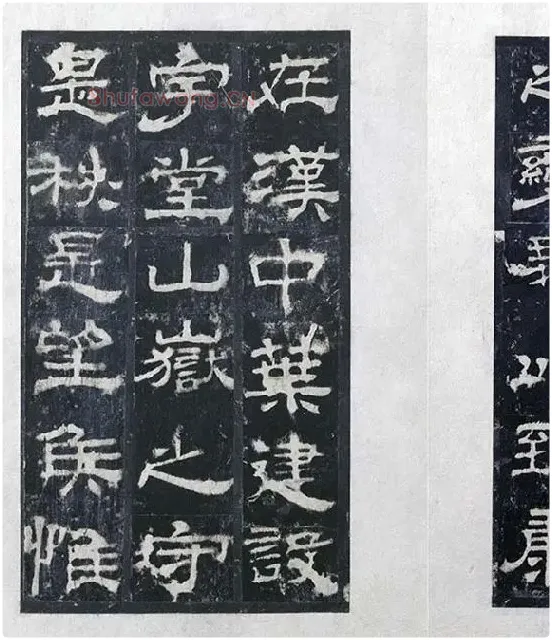 在漢中葉建設
宇堂山嶽之守
是秩是望侯惟
Shufawang.cn